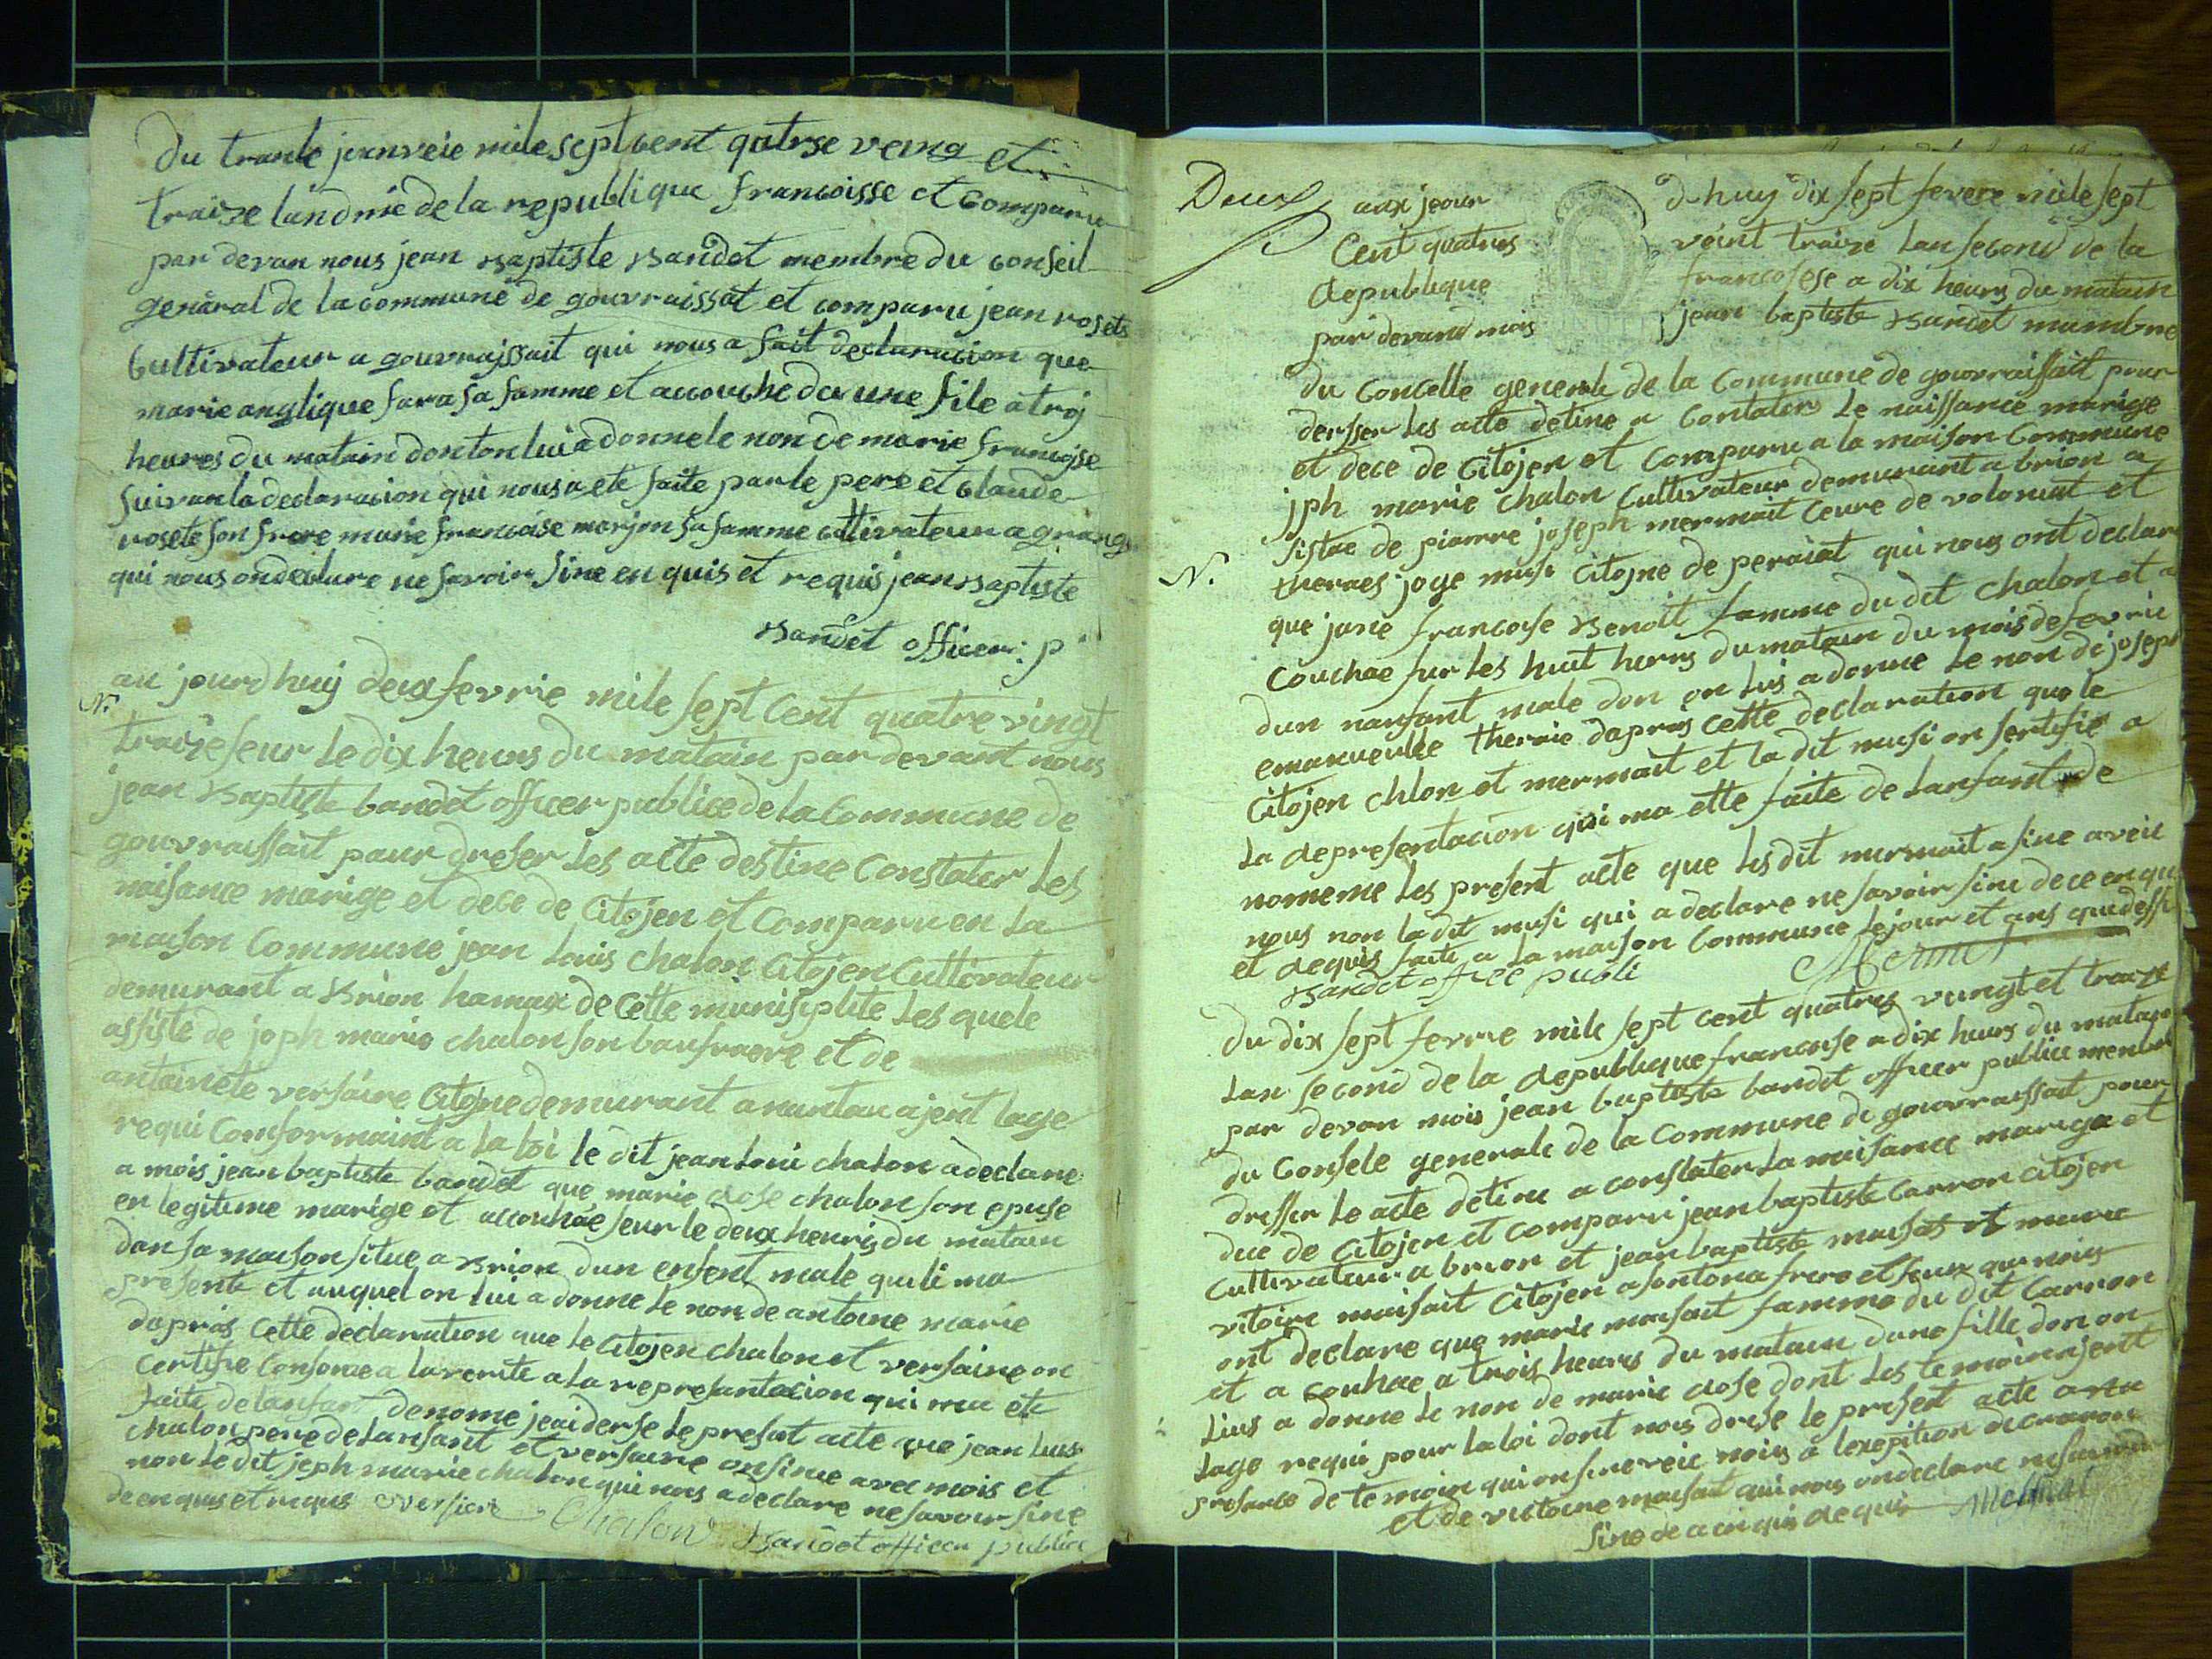 Du trante janveie mile sept cent qutrse veing et
traize landmie de la republique francoisse et comparu
par devan nous jean Baptiste Bandet membre du conseil
genäral de la commune de gouvraissat et comparu jean rosets
Cultivateur a gouvraissait qui nous a fait declaracion que
marie anglique fara sa famme et accouche da une file a troj
heures du matain dont on lui a donne le non de marie francoise
suivan la declaracion qui nous a ete faite par le pere et Claude
rosete son frere marie francoise marjon sa famme cultivateur a grang
qui nous on declare ne savoir sine en quis et requis jean Baptiste
Bandet officer : p
N.
au jourdhuy deux fevrie mile sept Cent quatre vingt
traize seur le dix heurs du matain par devant nous
jean Baptiste bandet officer publice de la Commune de
gouvraissait pour dreser les acte destine Constater les
naisance marige et dece de Citojen et Comparu en la
maison Commune jean Louis chalon Citojen Cultivateur
demurant a Brion hamaux de Cette munisiplite les quele
assiste de joph marie chalon son baufraere et de
antoinete versaire Citojne demurant a nantau ajent lage
requi Comformaint a la loi le dit jean Loui chalon a declare
a mois jean baptiste bandet que marie rose chalon son epuse
en legitime marige et accouhae seur le deux heuris du matain
dan sa maison situe a Brion dun enfent male quili ma
presente et auquel on lui a donne le non de antoine marie
dapräs Cette declaration que le Citojen chalon et versaire on
Certifie Conforme a la verite a la represantacion qui ma ete
faite de lanfant denome jeai derse le presat acte que jean Luis
chalon pere de lanfant et versaire on sine avec mois et
non le dit joph marie chalon qui nous a declare ne savoir sine
de en quis et requis versiere Chalon Bandet officer publice
Deux
aux jeour d-huy dix sept fevere mile sept
Cent quatres veint traize lan second de la
depublique francosese a dix heurs du matain
par devand mois jean baptiste Bandet mumbre
du Concelle generale de la Commune de gouvraissait pour
dersser les acte detine a Contater le naissance marige
et dece de Citojen et Comparu a la maison Commune
jph marie chalon Cultivateur demurant a brion a
sistae de piarre joseph mermait Ceure de volonat et
N.
theraes joye musi Citojne de peraiat qui nous ont declar
que jane francoise Benoit famme du dit chalon et a
Couchae sur les huit hurs du matain du mois de fevrie
dun nanfant male don on luis a donne le non de joseph
emanueulle theraie dapras cette declaration que le
Citojen chlon et mermait et la dit musi on sertifie a
la depresentacion qui ma ette faite de lanfant de
nomeme les present acte que les dit mermait a sine aveic
nous non la dit musi qui a declare ne savoir sine de ce en qu
et dequis faite a la maison Commune le jour et ans quedessu
Bandet office publi Mermet
Du dix sept fevrie mile sept cent quatres vungt et traize
lan second de la depublique francoise a dix hurs du matain
par devan mois jean baptiste bandet officer publice menbre
du Consele generale de la Commune de gouvraissait pour
dresser le acte detine a constater la naisance mariga et
duc de Citojen et Comparu jean baptiste Carron citojen
Cultivateur a brion et jean baptiste maisat et marie
vitoire maisait Citojen a fontona frero et seur qui nois
ont declare que marie maisait famme du dit Carron
et a couhae a trois heures du matain duna fille don on
lius a donne le non de marie dose dont les temoin ajent
lage requi pour la loi dont nois drese le presest acte ana
presance de temoin qui on sine veic nois a lexepition de caron
et de victoire maisait qui nous on declare ne savoir
sine de a en qui de quis